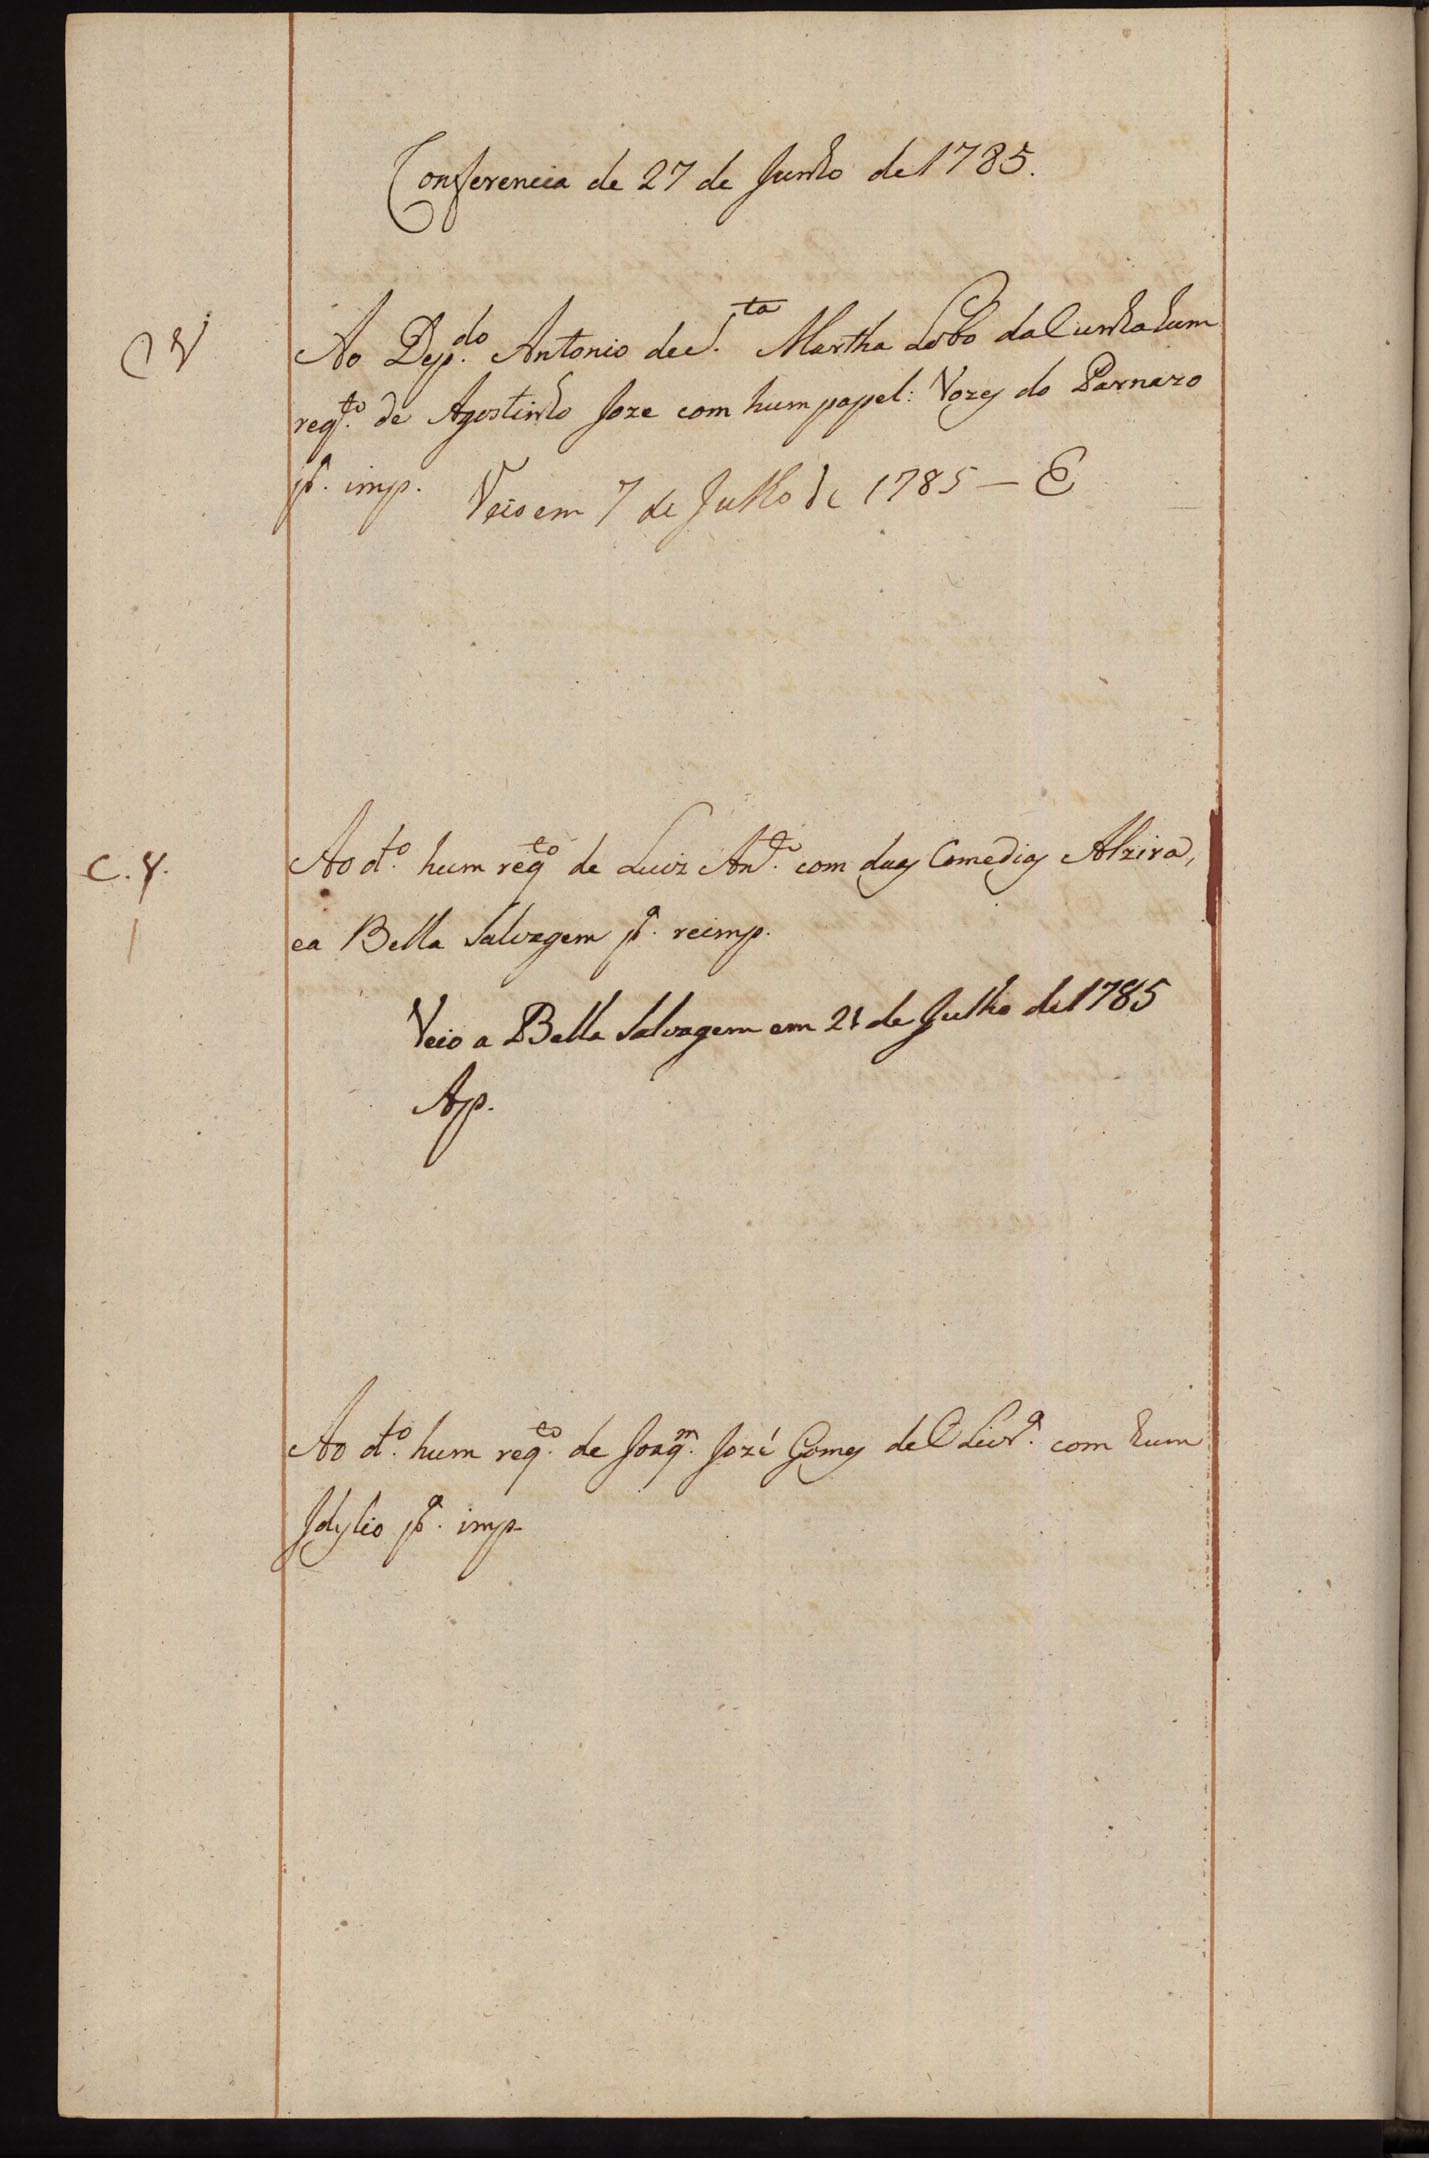 Conferencia de 27 de Junho de 1785.
Ao Dep.do Antonio de S.ta Martha Lobo da Cunha hum
req.to de Agostinho Joze com hum papel: Vozes do Parnazo
p.a imp.
Veio em 7 de Julho de 1785 — E
C. 8.
Ao d.o hum req.to de Luiz An.to com duas Comedias Alzira,
e a Bella Salvagem p.a reimp.
Veio a Bella Salvagem em 21 de Julho de 1785
Ap.
Ao d.o hum req.to de Joaq.m Jozé Gomes de Olivr.a com hum
Idylio p.a imp.